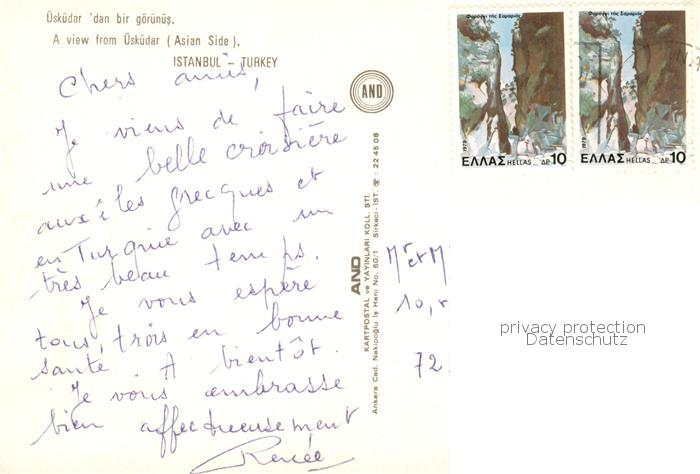 Üsküdar 'dan bir görünüş.
A view from Üsküdar (Asian Side).
ISTANBUL - TURKEY
Chers amis,
Je viens de faire
une belle croisière
aux îles grecques et
en Turquie avec un
très beau temps.
Je vous espère
tous, trois en bonne
santé. A bientôt.
Je vous embrasse
bien affectueusement
Renée
AND
AND
KARTPOSTAL ve YAYINLARI KOLL. ŞTİ.
Ankara Cad. Nakipoğlu İş Hanı No. 60/1 Sirkeci-İST. ☎ : 22 45 08
Φαράγγι τῆς Σαμαριᾶς
1979
ΕΛΛΑΣ HELLAS ΔΡ 10
Φαράγγι τῆς Σαμαριᾶς
1979
ΕΛΛΑΣ HELLAS ΔΡ 10
Mr et M
10,
72.
privacy protection
Datenschutz